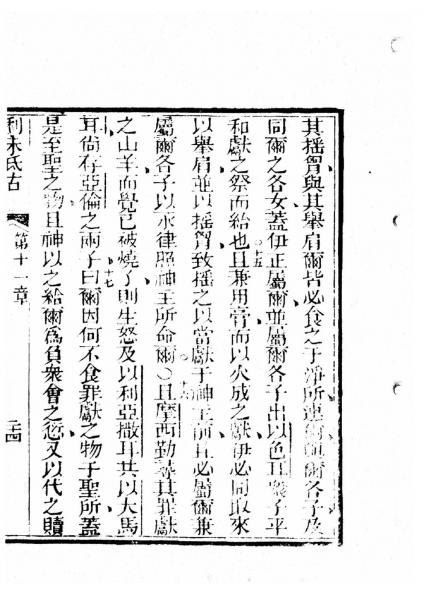 其搖胷與其舉肩爾皆必食之于淨所連爾與爾各子及
同爾之各女蓋伊正屬爾並屬爾各子出以色耳衆子平
和獻之祭而給也十五且兼用膏而以火成之獻伊必同取來
以舉肩並以搖胷致搖之以當獻于神主前且必屬爾兼
屬爾各子以永律照神主所命爾〇十六且摩西勤尋其罪獻
之山羊而覺已被燒了則生怒及以利亞撒耳共以大馬
耳尚存亞倫之兩子曰十七爾因何不食罪獻之物于聖所蓋
是至聖之物且神以之給爾爲負衆會之愆又以代之贖
利未氐古
第十一章
二十四